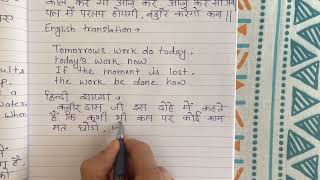 काल करे सो आज कर, आज करे सो अब
पल में परलय होयगी, बहुरि करेगो कब ||
English translation →
Tomorrows work do today,
today's work now
If the moment is lost,
the work be done how
हिन्दी व्याख्या,
कबीर दास जी इस दोहे में कहते
हैं कि कभी भी कल पर कोई काम
मत छोडो,